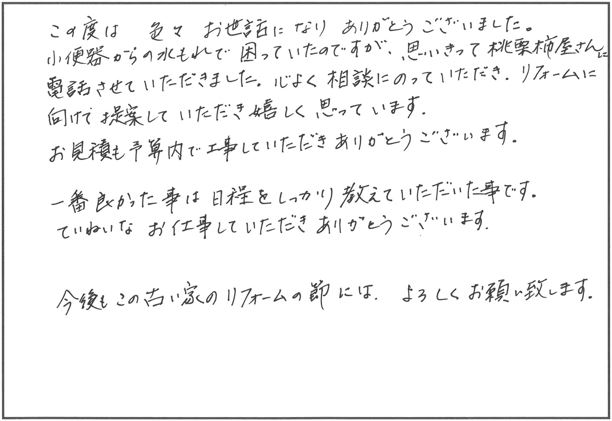 この度は 色々 お世話になり ありがとうございました。
小便器からの水もれで 困っていたのですが、思いきって 桃栗柿屋さんに
電話させていただきました。心よく 相談にのっていただき、リフォームに
向けて 提案して いただき 嬉しく 思っています。
お見積も 予算内で 工事していただき ありがとうございます。
一番良かった事は 日程を しっかり 教えていただいた事です。
ていねいな お仕事していただき ありがとうございます。
今後も この古い家の リフォームの 節には、よろしく お願い致します。